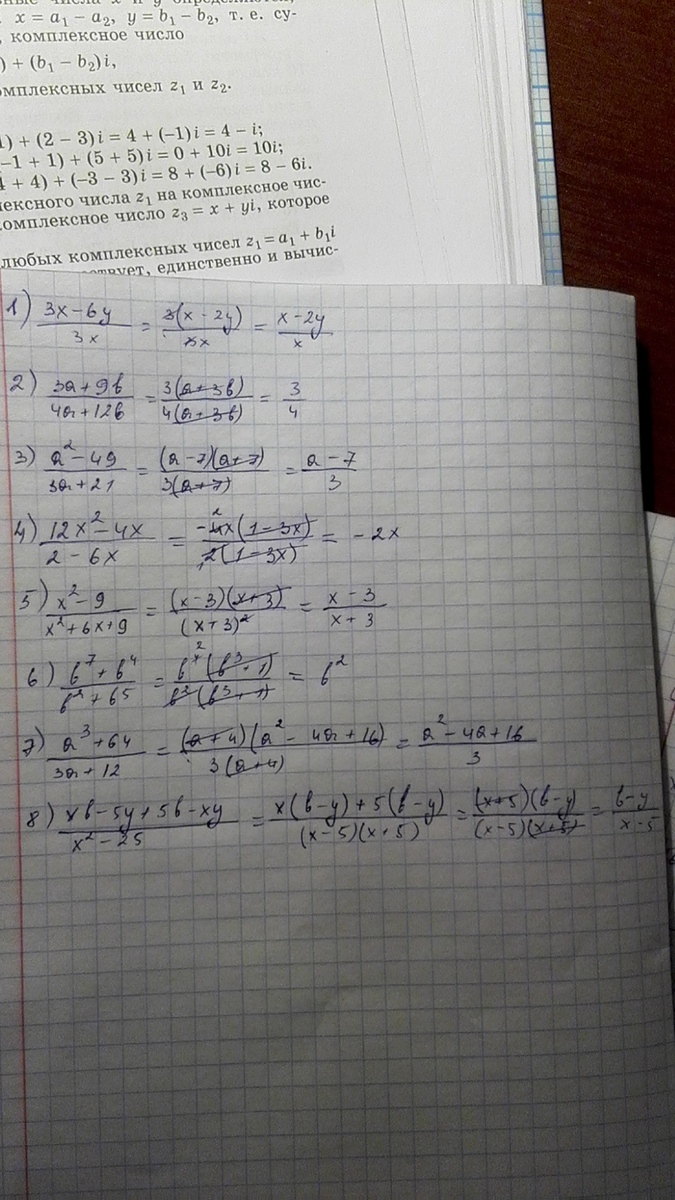 x = a₁ − a₂, y = b₁ − b₂, т. е. су-
, комплексное число
) + (b₁ − b₂)i,
омплексных чисел z₁ и z₂.
1) + (2 − 3)i = 4 + (−1)i = 4 − i;
−1 + 1) + (5 + 5)i = 0 + 10i = 10i;
4 + 4) + (−3 − 3)i = 8 + (−6)i = 8 − 6i.
лексного числа z₁ на комплексное чис-
комплексное число z₃ = x + yi, которое
любых комплексных чисел z₁ = a₁ + b₁i
, единственно и вычис-
1) (3x − 6y)/(3x) = (3(x − 2y))/(3x) = (x − 2y)/x
2) (3a + 9b)/(4a + 12b) = (3(a + 3b))/(4(a + 3b)) = 3/4
3) (a² − 49)/(3a + 21) = ((a − 7)(a + 7))/(3(a + 7)) = (a − 7)/3
4) (12x² − 4x)/(2 − 6x) = (−4x(1 − 3x))/(2(1 − 3x)) = −2x
5) (x² − 9)/(x² + 6x + 9) = ((x − 3)(x + 3))/((x + 3)²) = (x − 3)/(x + 3)
6) (b⁷ + b⁴)/(b² + b⁵) = (b⁴(b³ + 1))/(b²(b³ + 1)) = b²
7) (a³ + 64)/(3a + 12) = ((a + 4)(a² − 4a + 16))/(3(a + 4)) = (a² − 4a + 16)/3
8) (xb − 5y + 5b − xy)/(x² − 25) = (x(b − y) + 5(b − y))/((x − 5)(x + 5)) = ((x + 5)(b − y))/((x − 5)(x + 5)) = (b − y)/(x − 5)